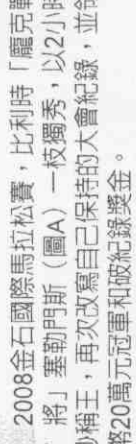 2008金石國際馬拉松賽，比利時「龐克戰
將」塞勒門斯（圖A）一枝獨秀，以2小時
稱王，再次改寫自己保持的大會紀錄，並
20萬元冠軍和破紀錄獎金。